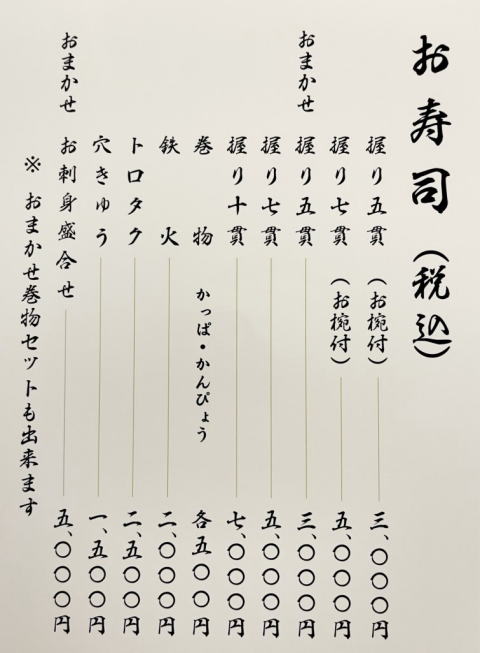 お寿司（税込）
握り五貫（お椀付）三、〇〇〇円
握り七貫（お椀付）五、〇〇〇円
おまかせ 握り五貫 三、〇〇〇円
握り七貫 五、〇〇〇円
握り十貫 七、〇〇〇円
巻物 かっぱ・かんぴょう 各五〇〇円
鉄火 二、〇〇〇円
トロタク 二、五〇〇円
穴きゅう 一、五〇〇円
おまかせ お刺身盛合せ 五、〇〇〇円
※ おまかせ巻物セットも出来ます